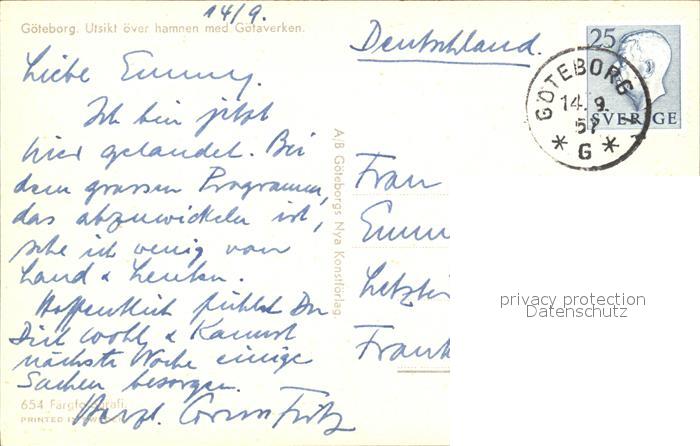 14/9.
Göteborg. Utsikt över hamnen med Götaverken.
Liebe Emmy.
Ich bin jetzt
hier gelandet. Bei
dem grossen Programm,
das abzuwickeln ist,
sehe ich wenig von
Land & Leuten.
Hoffentlich fühlst Du
Dich wohl & kannst
nächste Woche einige
Sachen besorgen.
Herzl. Fritz
654 Färgfotografi.
PRINTED IN SWEDEN
A/B Göteborgs Nya Konstförlag
Deutschland.
25
SVERIGE
GÖTEBORG
14. 9.
57
* G *
Frau
Emm
Letzte
Frank
privacy protection
Datenschutz